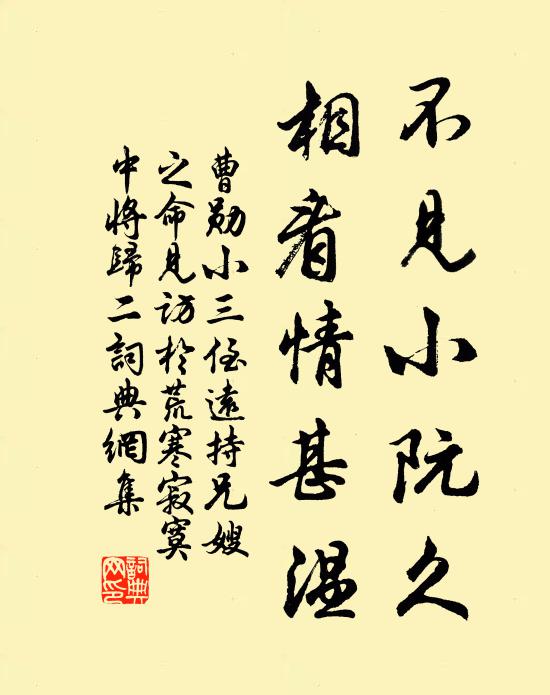 不見小阮久
相看情甚温
曹勋小三侄遠持兄嫂
之命見訪於荒寒寂寞
中將歸二詞典網集
詞典
网印